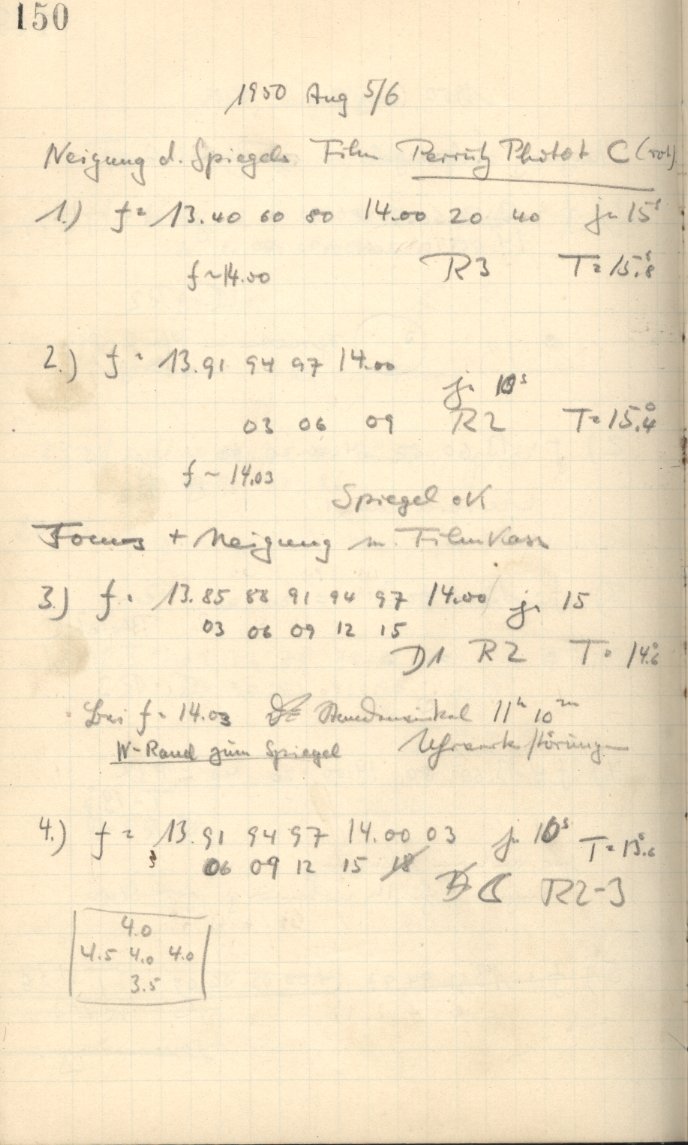 150
1950 Aug 5/6
Neigung d. Spiegels Film Perutz Photot C (rot)
1.) f = 13.40 60 80 14.00 20 40 je 15ˢ
f ~ 14.00 R3 T = 15.8
2.) f = 13.91 94 97 14.00
je 10ˢ
03 06 09 R2 T = 15.°4
f ~ 14.03
Spiegel ok
Focus + Neigung m. Filmkass
3.) f = 13.85 88 91 94 97 14.00 je 15
03 06 09 12 15
D1 R2 T = 14.°6
bei f = 14.03 Stundenwinkel 11ʰ 10ᵐ
W-Rand zum Spiegel Uhrwerkstörungen
4.) f = 13.91 94 97 14.00 03 je 10ˢ T = 13.°6
06 09 12 15 18
R2-3
4.0
4.5 4.0 4.0
3.5